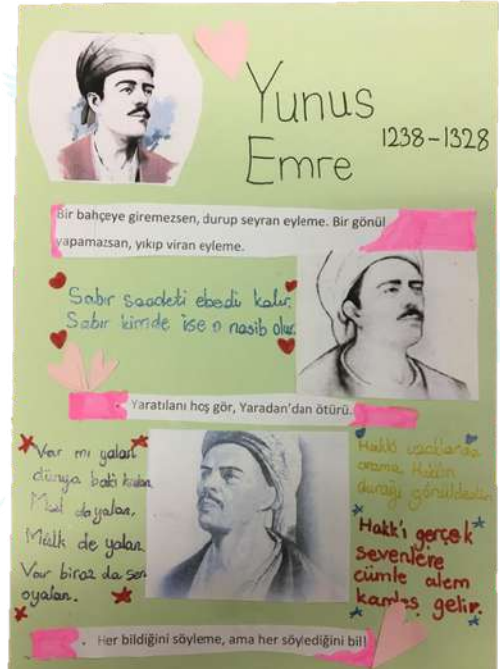 Yunus
Emre
1238-1328
Bir bahçeye giremezsen, durup seyran eyleme. Bir gönül
yapamazsan, yıkıp viran eyleme.
Sabır saadeti ebedi kalır.
Sabır kimde ise o nasib olur
Yaratılanı hoş gör, Yaradan'dan ötürü.
Var mı yalan
dünya baki kalan
Mal da yalan,
Mülk de yalan
Var biraz da sen
oyalan.
Hakkı uzaklarda
arama, Hakkın
durağı
Hakk'ı gerçek
sevenlere
cümle alem
kardeş gelir.
. Her bildiğini söyleme, ama her söylediğini bil!